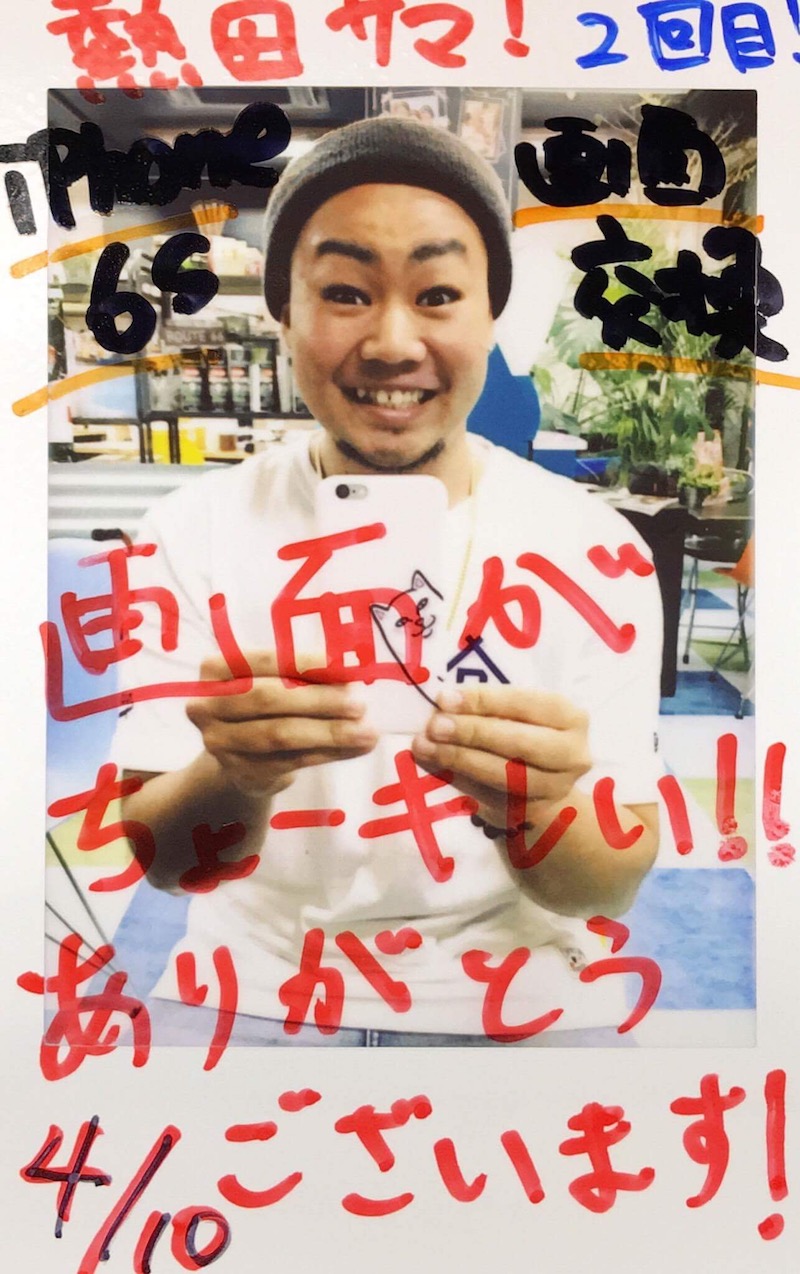 熱田サマ! 2回目!
iPhone 画面
6s 交換
ROUTE 66
画面が
ちょーキレい!!
ありがとう
ございます!
4/10